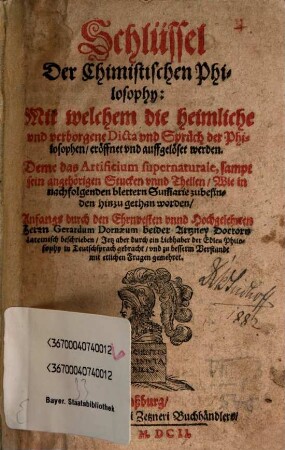 Schlüssel
Der Chimistischen Phi-
losophy:
Mit welchem die heimliche
vnd verborgene Dicta vnd Sprüch der Phi-
losophen/ eröffnet vnd auffgelöset werden.
Deme das Artificium supernaturale, sampt
sein angehörigen Stucken vnnd Theilen/ Wie in
nachfolgenden blettern Sum̄arie zubefin-
den hinzu gethan worden/
Anfangs durch den Ehrnvesten vnnd Hochgelehrten
Herrn Gerardum Dornæum beider Artzney Doctorn
Lateinisch beschrieben/ Jetz aber durch ein Liebhaber der Edlen Philo-
sophy in Teutschsprach gebracht/ vnd zu besserm Verstande
mit etlichen Fragen gemehret.
1882
<36700040740012
<36700040740012
Bayer. Staatsbibliothek
ßburg/
Zetzneri Buchhändlers/
M. DCII.